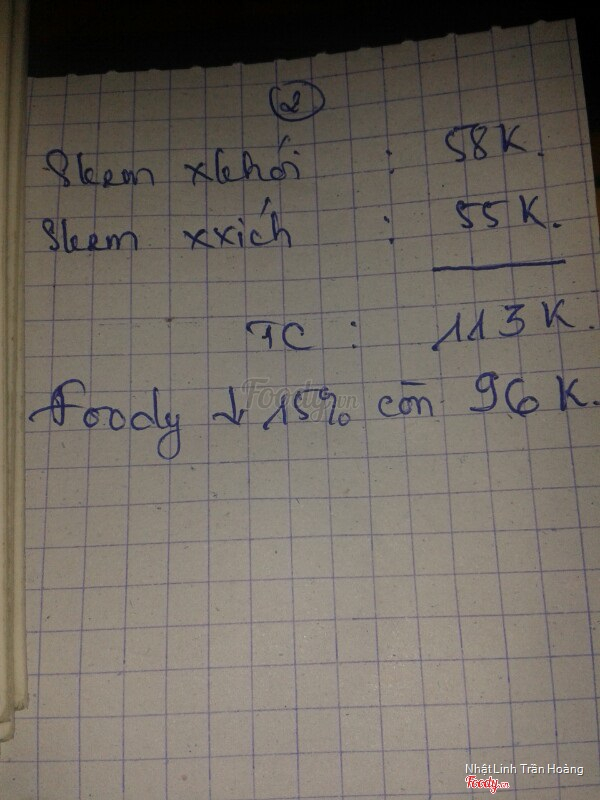 2
Skem xkhói : 58K.
Skem xxích : 55K.
TC : 113K.
Foody ↓ 15% còn 96K.
Foody.vn
Nhật Linh Trần Hoàng
Foody.vn